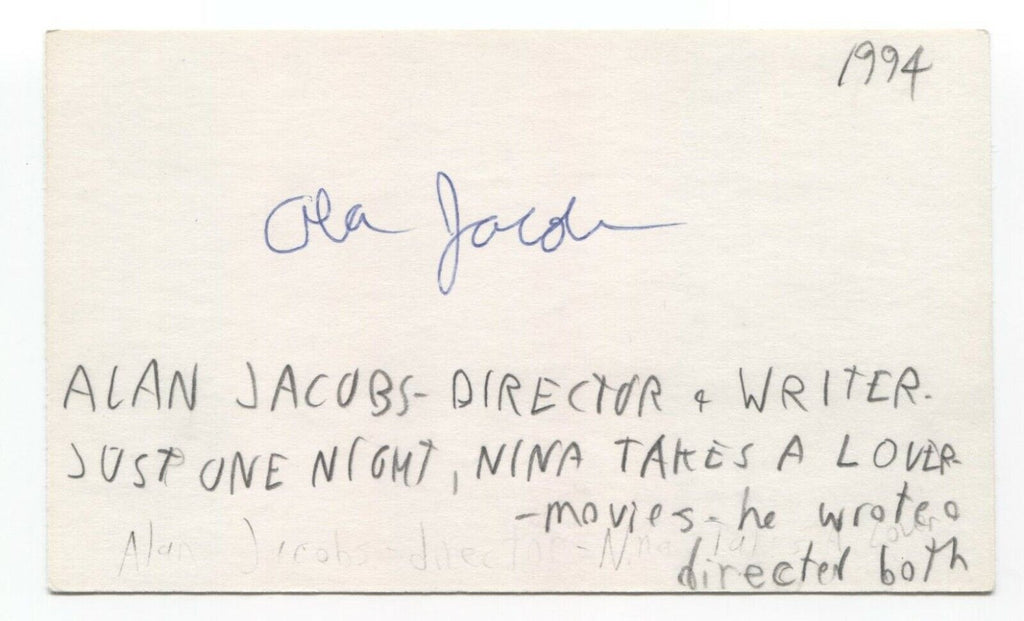 1994
Alan Jacobs
ALAN JACOBS- DIRECTOR & WRITER.
JUST ONE NIGHT, NINA TAKES A LOVER-
-movies- he wrote &
Alan Jacobs-director-Nina Takes A Lover
directed both